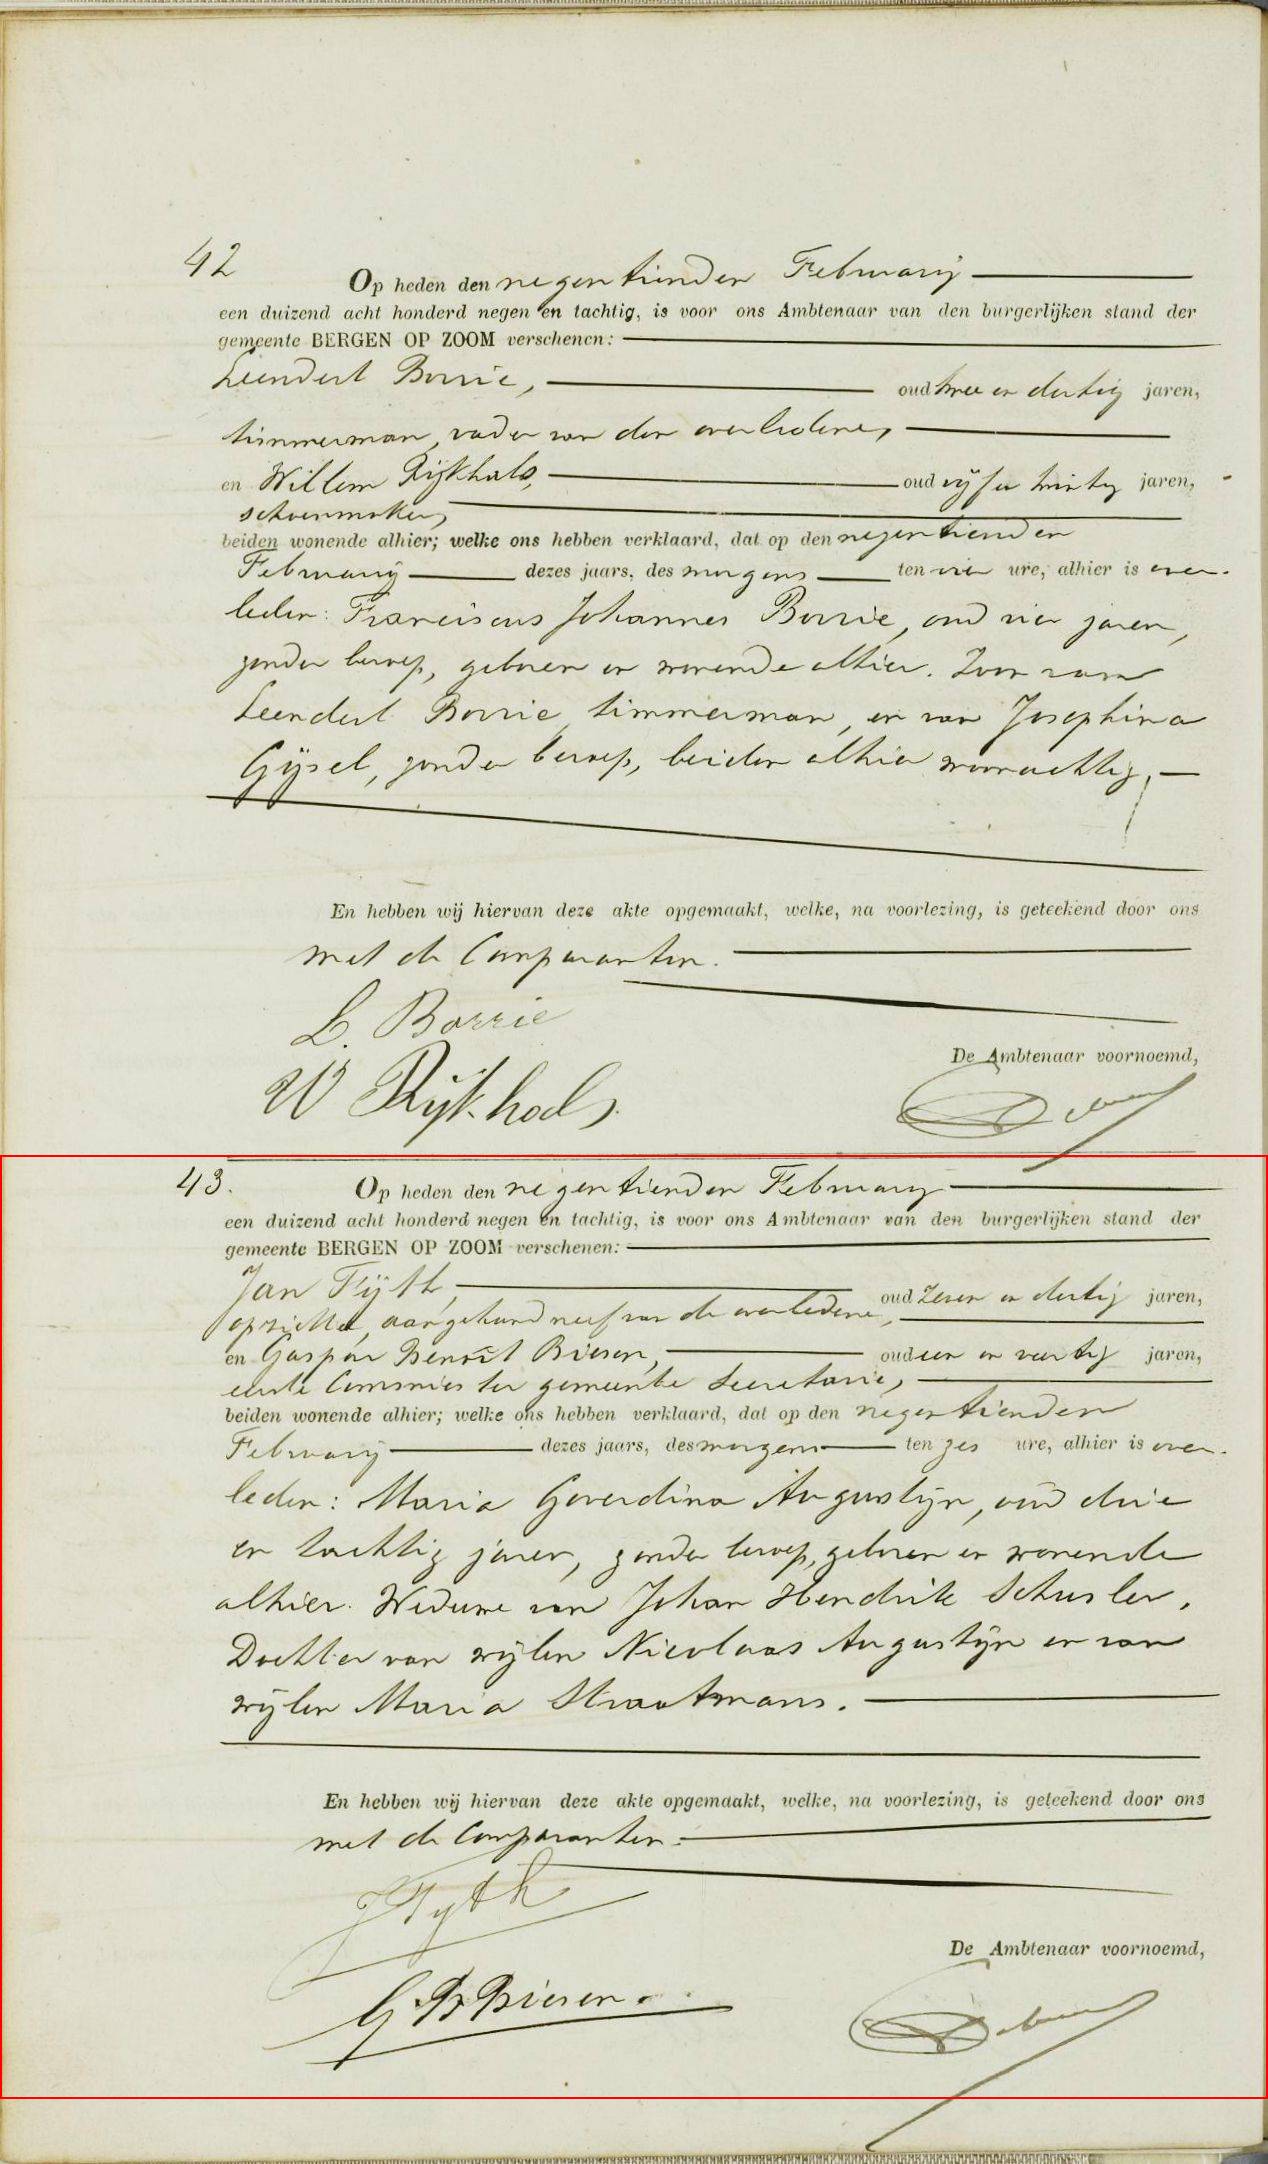 42
Op heden den negentienden Februarij
een duizend acht honderd negen en tachtig, is voor ons Ambtenaar van den burgerlijken stand der
gemeente BERGEN OP ZOOM verschenen:
Leendert Borrie, oud twee en dertig jaren,
timmerman, vader van den overledene,
en Willem Rijkhals, oud vijf en twintig jaren,
schoenmaker,
beiden wonende alhier; welke ons hebben verklaard, dat op den negentienden
Februarij dezes jaars, des morgens ten vier ure, alhier is over-
leden: Franciscus Johannes Borrie, oud vier jaren,
zonder beroep, geboren en wonende alhier. Zoon van
Leendert Borrie, timmerman, en van Josephina
Gijsel, zonder beroep, beiden alhier woonachtig,
En hebben wij hiervan deze akte opgemaakt, welke, na voorlezing, is geteekend door ons
met de Comparanten.
L. Borrie
De Ambtenaar voornoemd,
W Rijkhals.
43.
Op heden den negentienden Februarij
een duizend acht honderd negen en tachtig, is voor ons Ambtenaar van den burgerlijken stand der
gemeente BERGEN OP ZOOM verschenen:
Jan Fijth, oud zeven en dertig jaren,
opzichter, aangehuwd neef van de overledene,
en Gaspar Benoît Biesen, oud een en veertig jaren,
eerste Commies ter gemeente Secretarie,
beiden wonende alhier; welke ons hebben verklaard, dat op den negentienden
Februarij dezes jaars, des morgens ten zes ure, alhier is over-
leden: Maria Goverdina Augustijn, oud drie
en tachtig jaren, zonder beroep, geboren en wonende
alhier. Weduwe van Johan Hendrik Schusler,
Dochter van wijlen Nicolaas Augustijn en van
wijlen Maria Straatmans.
En hebben wij hiervan deze akte opgemaakt, welke, na voorlezing, is geteekend door ons
met de Comparanten.
J Fyth
De Ambtenaar voornoemd,
G B Biesen